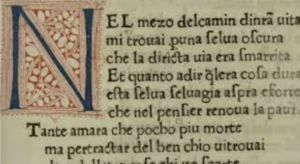 NEL mezo delcamin dinrã uita
mi trouai ꝑuna selua oscura
che la diricta uia era smarrita
Et quanto adir q̃lera cosa dura
esta selua seluagia aspra eforte
che nel pensier renoua la paur
Tante amara che pocho piu morte
ma pertractar del ben chio uitrouai